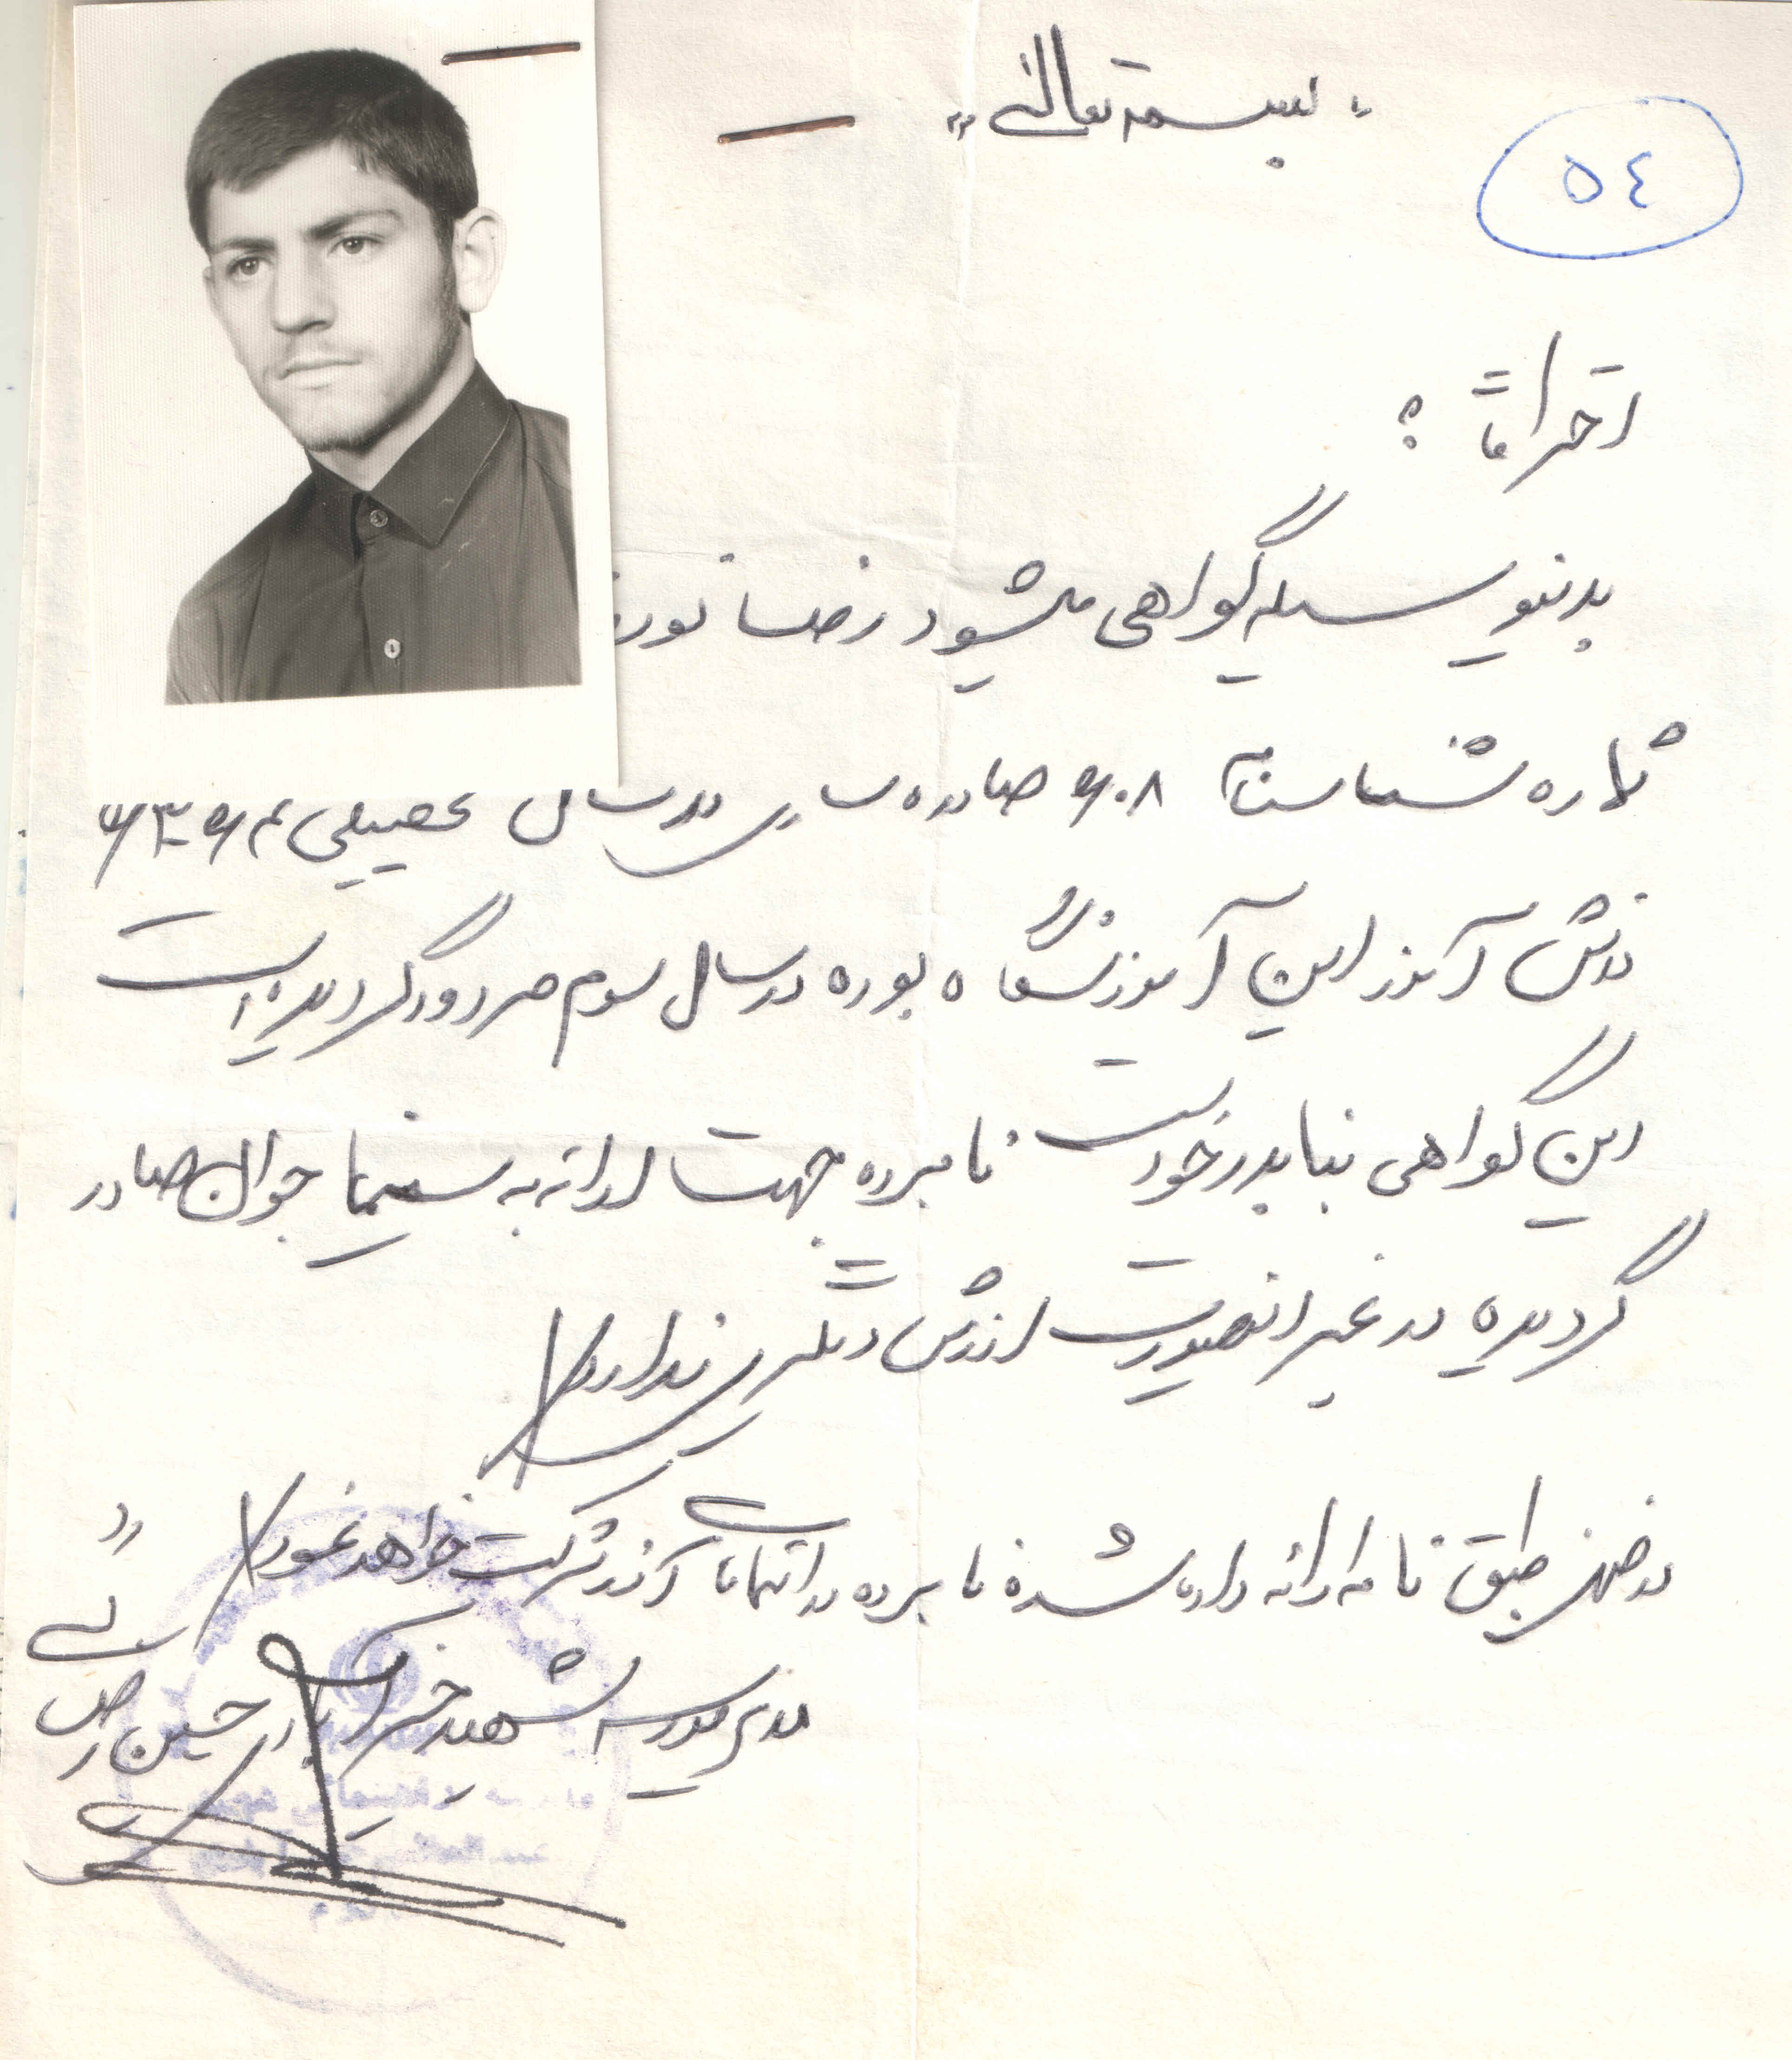 « بسمه تعالی »
٥٤
احتراماً ؛
بدینوسیله گواهی میشود رضا نور
شماره شناسنامه ۶۰۸ صادره ساری در سال تحصیلی
دانش آموز این آموزشگاه بوده در سال سوم مردود گردیده است
این گواهی بنا بدرخواست نامبرده جهت ارائه به سینما جوان صادر
گردیده در غیر اینصورت ارزش دیگری ندارد
در ضمن طبق نامه ارائه داده شده نامبرده در امتحانات شرکت خواهد نمود
مدیر مدرسه شهید حسین